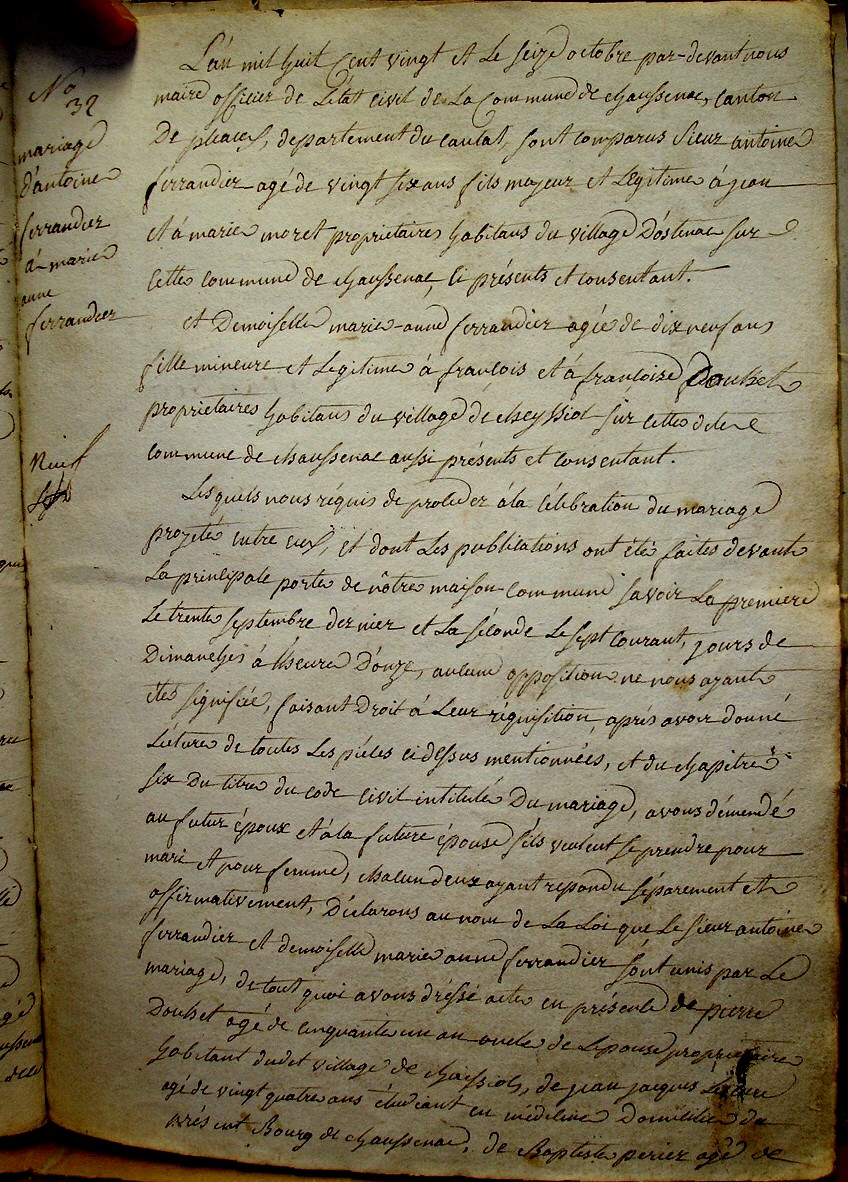 No
32
mariage
d'antoine
ferrandier
à marie
anne
ferrandier
L'an mil huit Cent vingt et Le seize octobre par-devant nous
maire officier de L'état civil de La Commune de chaussenac, canton
De pleaux, departement du cantal, sont comparus sieur antoine
ferrandier agé de vingt six ans fils majeur et Légitime à jean
et à marie moret proprietaires habitans du village D'ostenac sur
cette commune de chaussenac, ci présents et consentant.
et Demoiselle marie-anne ferrandier agée de dix neuf ans
fille mineure et Legitime à françois et à françoise Doubet
propriétaires habitans du village de cheyssiol sur cette dite
commune de chaussenac aussi présents et consentant.
Neuf
Lesquels nous réquis de proceder à la célébration du mariage
projetté entre eux, et dont Les publications ont été faites devant
La principale porte de nôtre maison commune savoir La première
Le trente septembre dernier et La séconde Le sept courant, jours de
Dimanches à L'heure D'onze, aucune opposition ne nous ayant
étté signifiée, faisant Droit à Leur réquisition, après avoir donné
Lécture de toutes Les piéces ci dessus mentionnées, et du chapitre
six Du titre du code civil intitulé Du mariage, avons démendé
au futur époux et à la future épouse s'ils veulent se prendre pour
mari et pour femme, chacun deux ayant repondu séparement et
affirmativement, Déclarons au nom de La Loi que Le sieur antoine
ferrandier et demoiselle marie anne ferrandier sont unis par Le
mariage, de tout quoi avons dréssé acte en présence de pierre
Doubet agé de cinquante un an oncle de L'epouse proprietaire
habitant dudit village de chayssiol, de jean jacques
agé de vingt quatre ans étudiant en médecine Domicilié du
présent Bourg de chaussenac, de Baptiste perier agé de